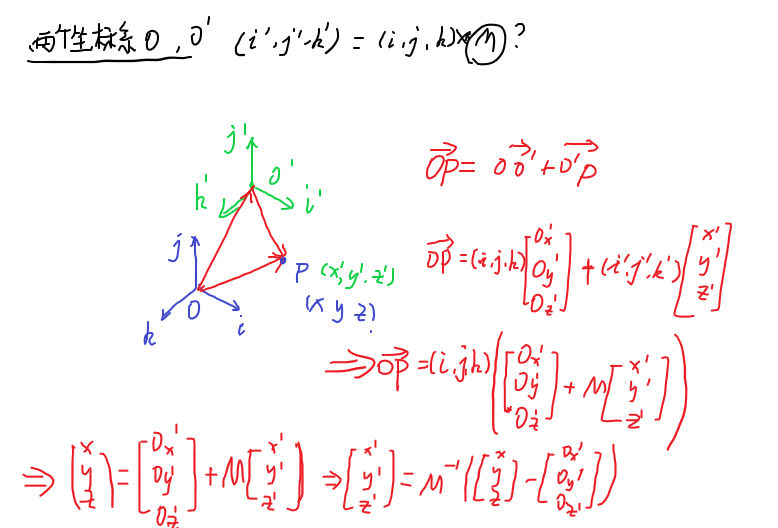 两个坐标系 O, O' (i', j', k') = (i, j, k) * M ?
j'
O'
k'
i'
j
P (x', y', z')
O
(x y z)
k
i
OP = OO' + O'P
OP = (i, j, k) [Ox' Oy' Oz'] + (i', j', k') [x' y' z']
⇒ OP = (i, j, k) ([Ox' Oy' Oz'] + M [x' y' z'])
⇒ [x y z] = [Ox' Oy' Oz'] + M [x' y' z'] ⇒ [x' y' z'] = M⁻¹ ([x y z] - [Ox' Oy' Oz'])